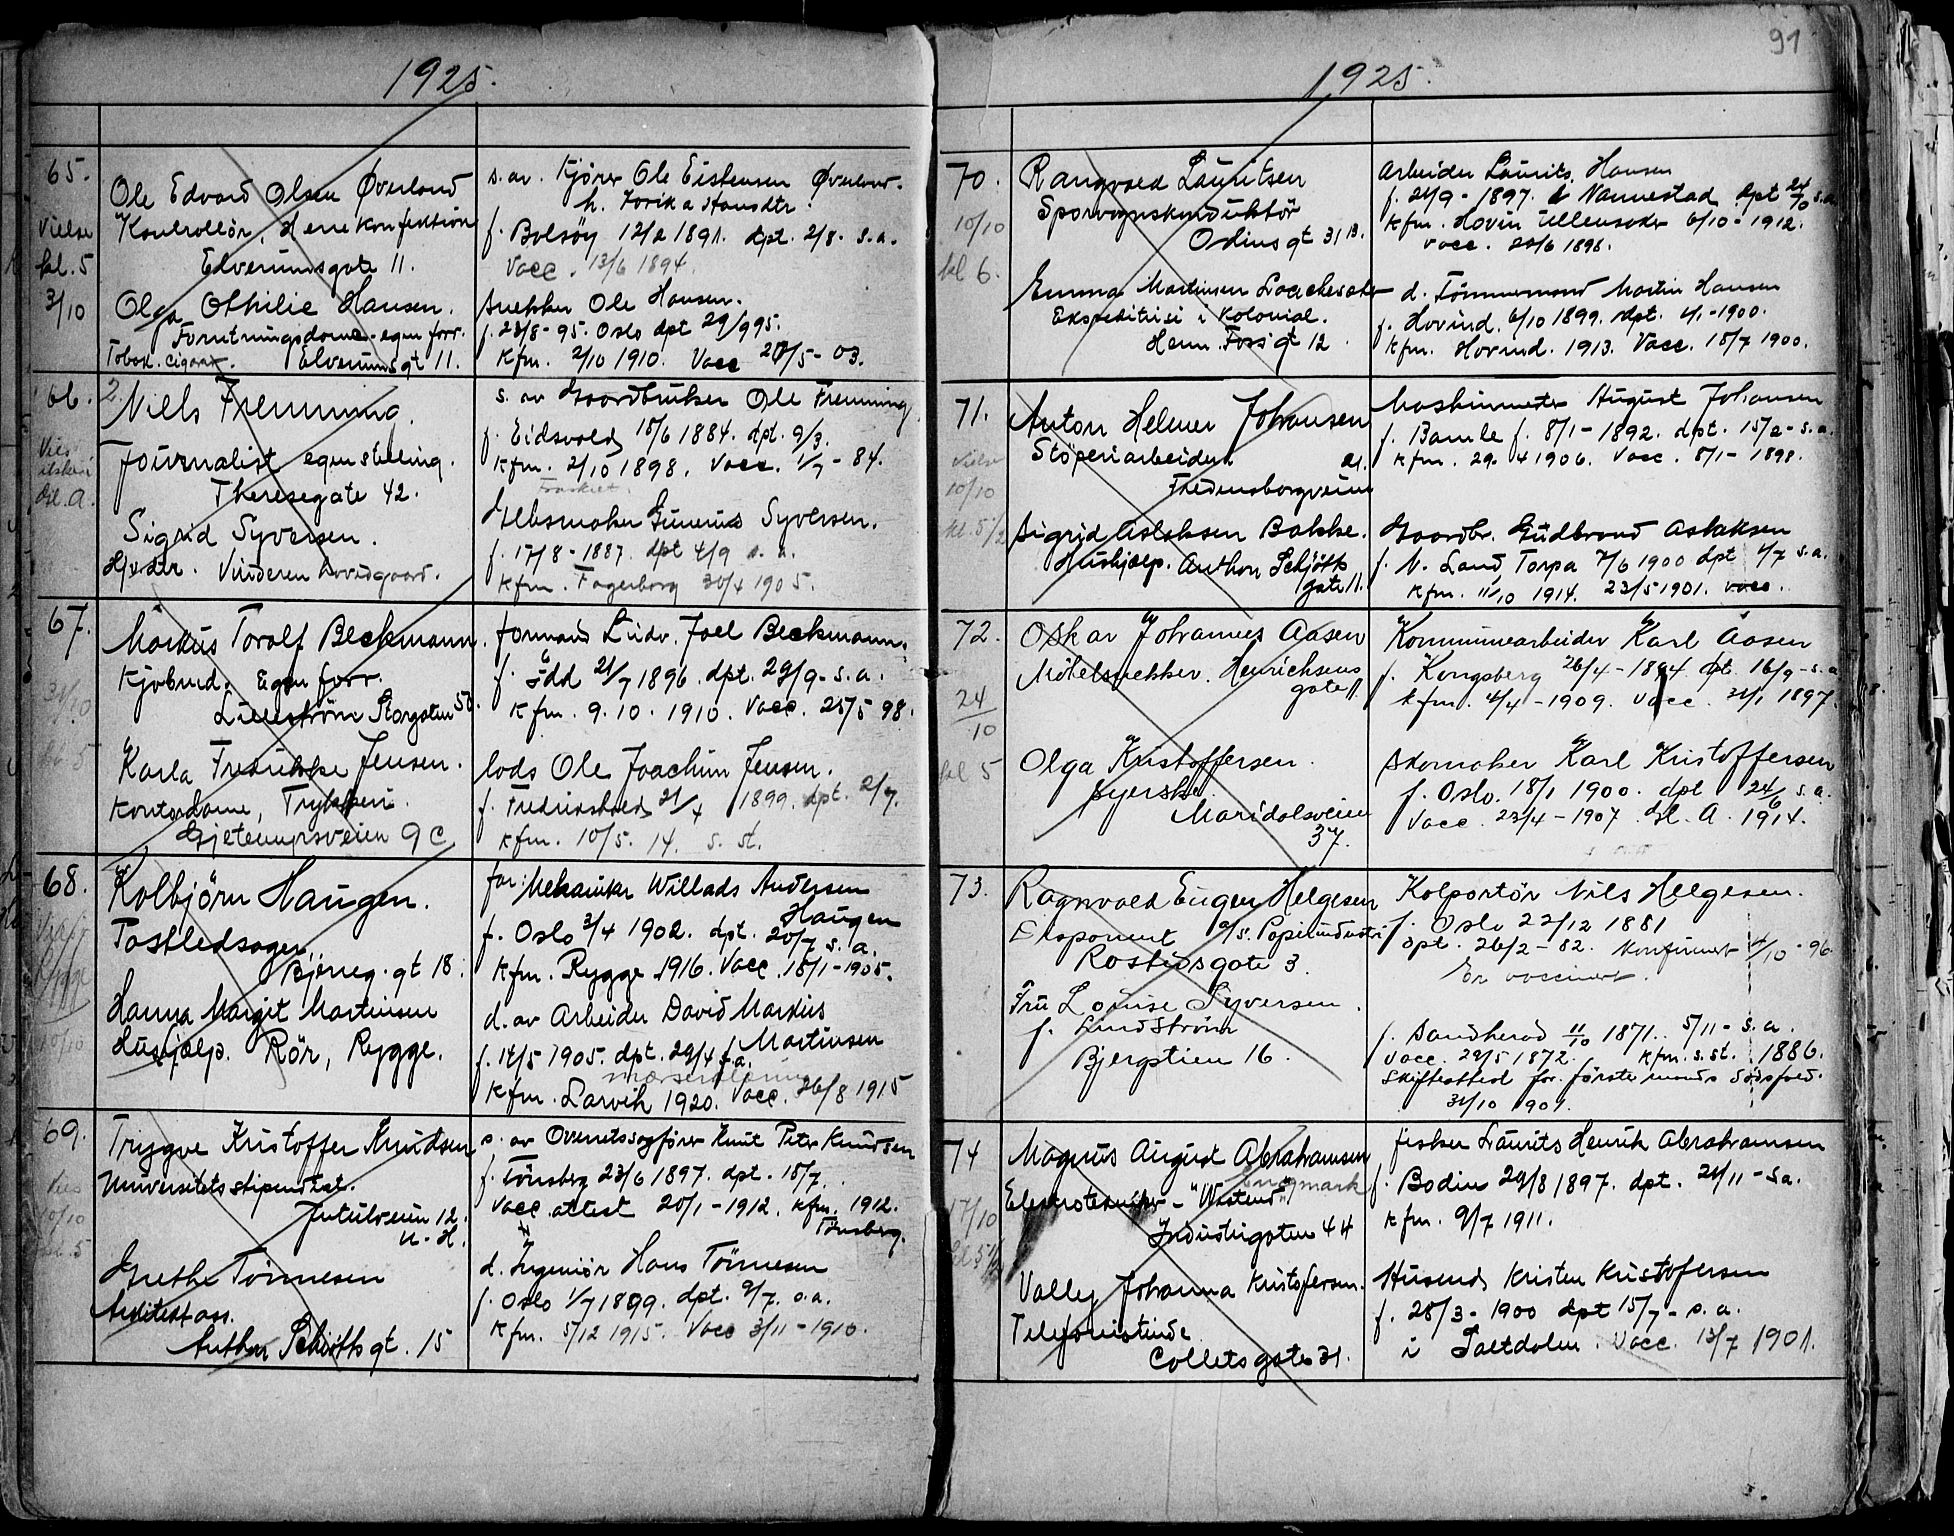 1925.
65.
Vielse
kl. 5
3/10
Ole Edvard Olsen Øverland
Kontrollör, Herrekonfektion
Elverumsgate 11.
Olga Othilie Hansen.
Forretningsdame egen forr.
Tobak. cigarr. Elverumsgt 11.
s. av. Kjører Ole Eistensen Øverland.
h.
f. Bolsöy 12/2 1891. dpt. 2/8. s.a.
Vacc. 13/6 1894.
Snekker Ole Hansen.
f. 23/8-95. Oslo dpt 29/9 95.
Kfm. 2/10 1910. Vacc 27/5-03.
66.
2.
Niels Fremming.
Journalist egen stilling.
Theresegate 42.
Sigrid Syversen.
Hj.v.dtr. Vinderen hovedgaard.
s. av Gaardbruker Ole Fremming
f. Eidsvold 15/6 1884. dpt. 9/3.
Kfm. 2/10 1898. Vacc. 1/7-84.
Fraskilt.
Gunerius Syversen.
f. 17/8-1887. dpt 4/9 s.a.
Kfm. Fagerborg 30/4 1905.
67.
31/10
kl. 5
Markus Toralf Beckmann.
Kjøbmd. Egen forr.
Lilleström Storgaten 50.
Karla Fredrikke Jensen.
Kontordame, Trykkeri.
Gjetemyrsveien 9 C
formand Ludv. Joel Beckmann.
f. Ödd 21/7 1896. dpt. 29/9-s.a.
Kfm. 9.10.1910. Vacc. 25/5 98.
lods Ole Joachim Jensen.
f. Fredrikstad 21/4 1899. dpt. 2/7.
Kfm. 10/5. 14. s. st.
68.
Rygge
10/10
Kolbjörn Haugen.
Postledsager.
Bjerreg. gt 18.
Hanna Margit Martinsen
Hushjælp. Rör, Rygge.
far: Mekaniker Willads Andersen
Haugen
f. Oslo 3/4 1902. dpt. 20/7 s.a.
Kfm. Rygge 1916. Vacc. 18/1-1905.
d. av Arbeider David Markus
Martinsen
f. 14/5 1905. dpt. 29/4 s.a.
Kfm. Larvik 1920. Vacc. 26/8 1915
69.
10/10
kl. 5
Trygve Kristoffer Knudsen
Universitetsstipendiat.
Jutulveien 12.
U.H.
Grethe Tönnesen
Arkitekt ass.
Anthon Schiøttsgt. 15
s. av Overretssagfører Knut Peter Knudsen
f. Tönsberg 23/6 1897. dpt. 18/7.
Vacc. attest 20/1-1912. Kfm. 1912.
Tönsberg.
d. Ingeniör Hans Tönnesen
f. Oslo 1/7 1899. dpt. 9/7. s.a.
Kfm. 5/12 1915. Vacc 3/11-1910.
91
1925.
70.
10/10
kl 6.
Rangvald Lauritsen
Sporvognskonduktör
Odinsgt 31 B.
Emma Martinsen
Ekspeditrise i Kolonial.
Herm. Fossgt 12.
Arbeider Laurits Hansen
f. 21/9-1897. i Nannestad dpt s.a.
Kfm. Hovin Ullensaker 6/10-1912.
Vacc. 20/6 1898.
d. Tömmermand Martin Hansen
f. Hovind. 6/10 1899. dpt. 1/1-1900.
Kfm. Hovind. 1913. Vacc. 18/7 1900.
71.
Vielse
10/10
kl. 5 1/2
Anton Helmer Johansen
Stöperiarbeider
21.
Fredensborgveien
Sigrid Aslaksen Bakke.
Hushjælp. Anthon Schjötts
gate 11.
Maskinmester August Johansen
f. Bamle f. 8/1-1892. dpt. 15/2-s.a.
Kfm. 29. 4 1906. Vacc. 8/1-1898.
Gaardbr. Gudbrand Aslaksen
f. N. Land Torpa 7/6 1900 dpt 1/7 s.a.
Kfm. 11/10 1914. 23/5 1901. vacc.
72.
24/10
kl 5
Oskar Johannes Aasen
Möbelsnekker. Henrichsens
gate 11.
Olga Kristoffersen.
Syerske.
Maridalsveien
37.
Kommunearbeider Karl Aasen
f. Kongsberg 26/4-1894 dpt. 16/9-s.a.
Kfm. 4/4-1909. Vacc. 21/1 1897.
Skomaker Karl Kristoffersen
f. Oslo. 18/1 1900. dpt 24/6 s.a.
Vacc. 23/4-1907. Gl. A. 1914.
73.
Ragnvald Eugen Helgesen
Disponent A/S. Papirindustri
Rostedsgate 3.
Fru Louise Syversen.
f. Lindström
Bjergstien 16.
Kolportör Nils Helgesen.
f. Oslo 22/12 1881
dpt. 26/2-82. Konfirmert 4/10-96
Er vaccinert.
f. Sandherad 11/10 1871. 5/11-s.a.
Vacc. 29/5 1872. Kfm. s. st. 1886.
Skifteattest for förste mands dödsfald.
31/10 1901.
74
17/10
kl 5 1/2
Magnus August Abrahamsen
Engmark
Elektrotekniker - "Westend"
Industrigaten 44
Valley Johanna Kristofersen.
Telefonistinde
Colletsgate 31.
fisker Laurits Henrik Abrahamsen
f. Bodin 29/8 1897. dpt. 21/11-s.a.
Kfm. 9/7 1911.
Husmd. Kristen Kristofersen
f. 28/3-1900 dpt 15/7-s.a.
i Saltdalen. Vacc. 13/7 1901.